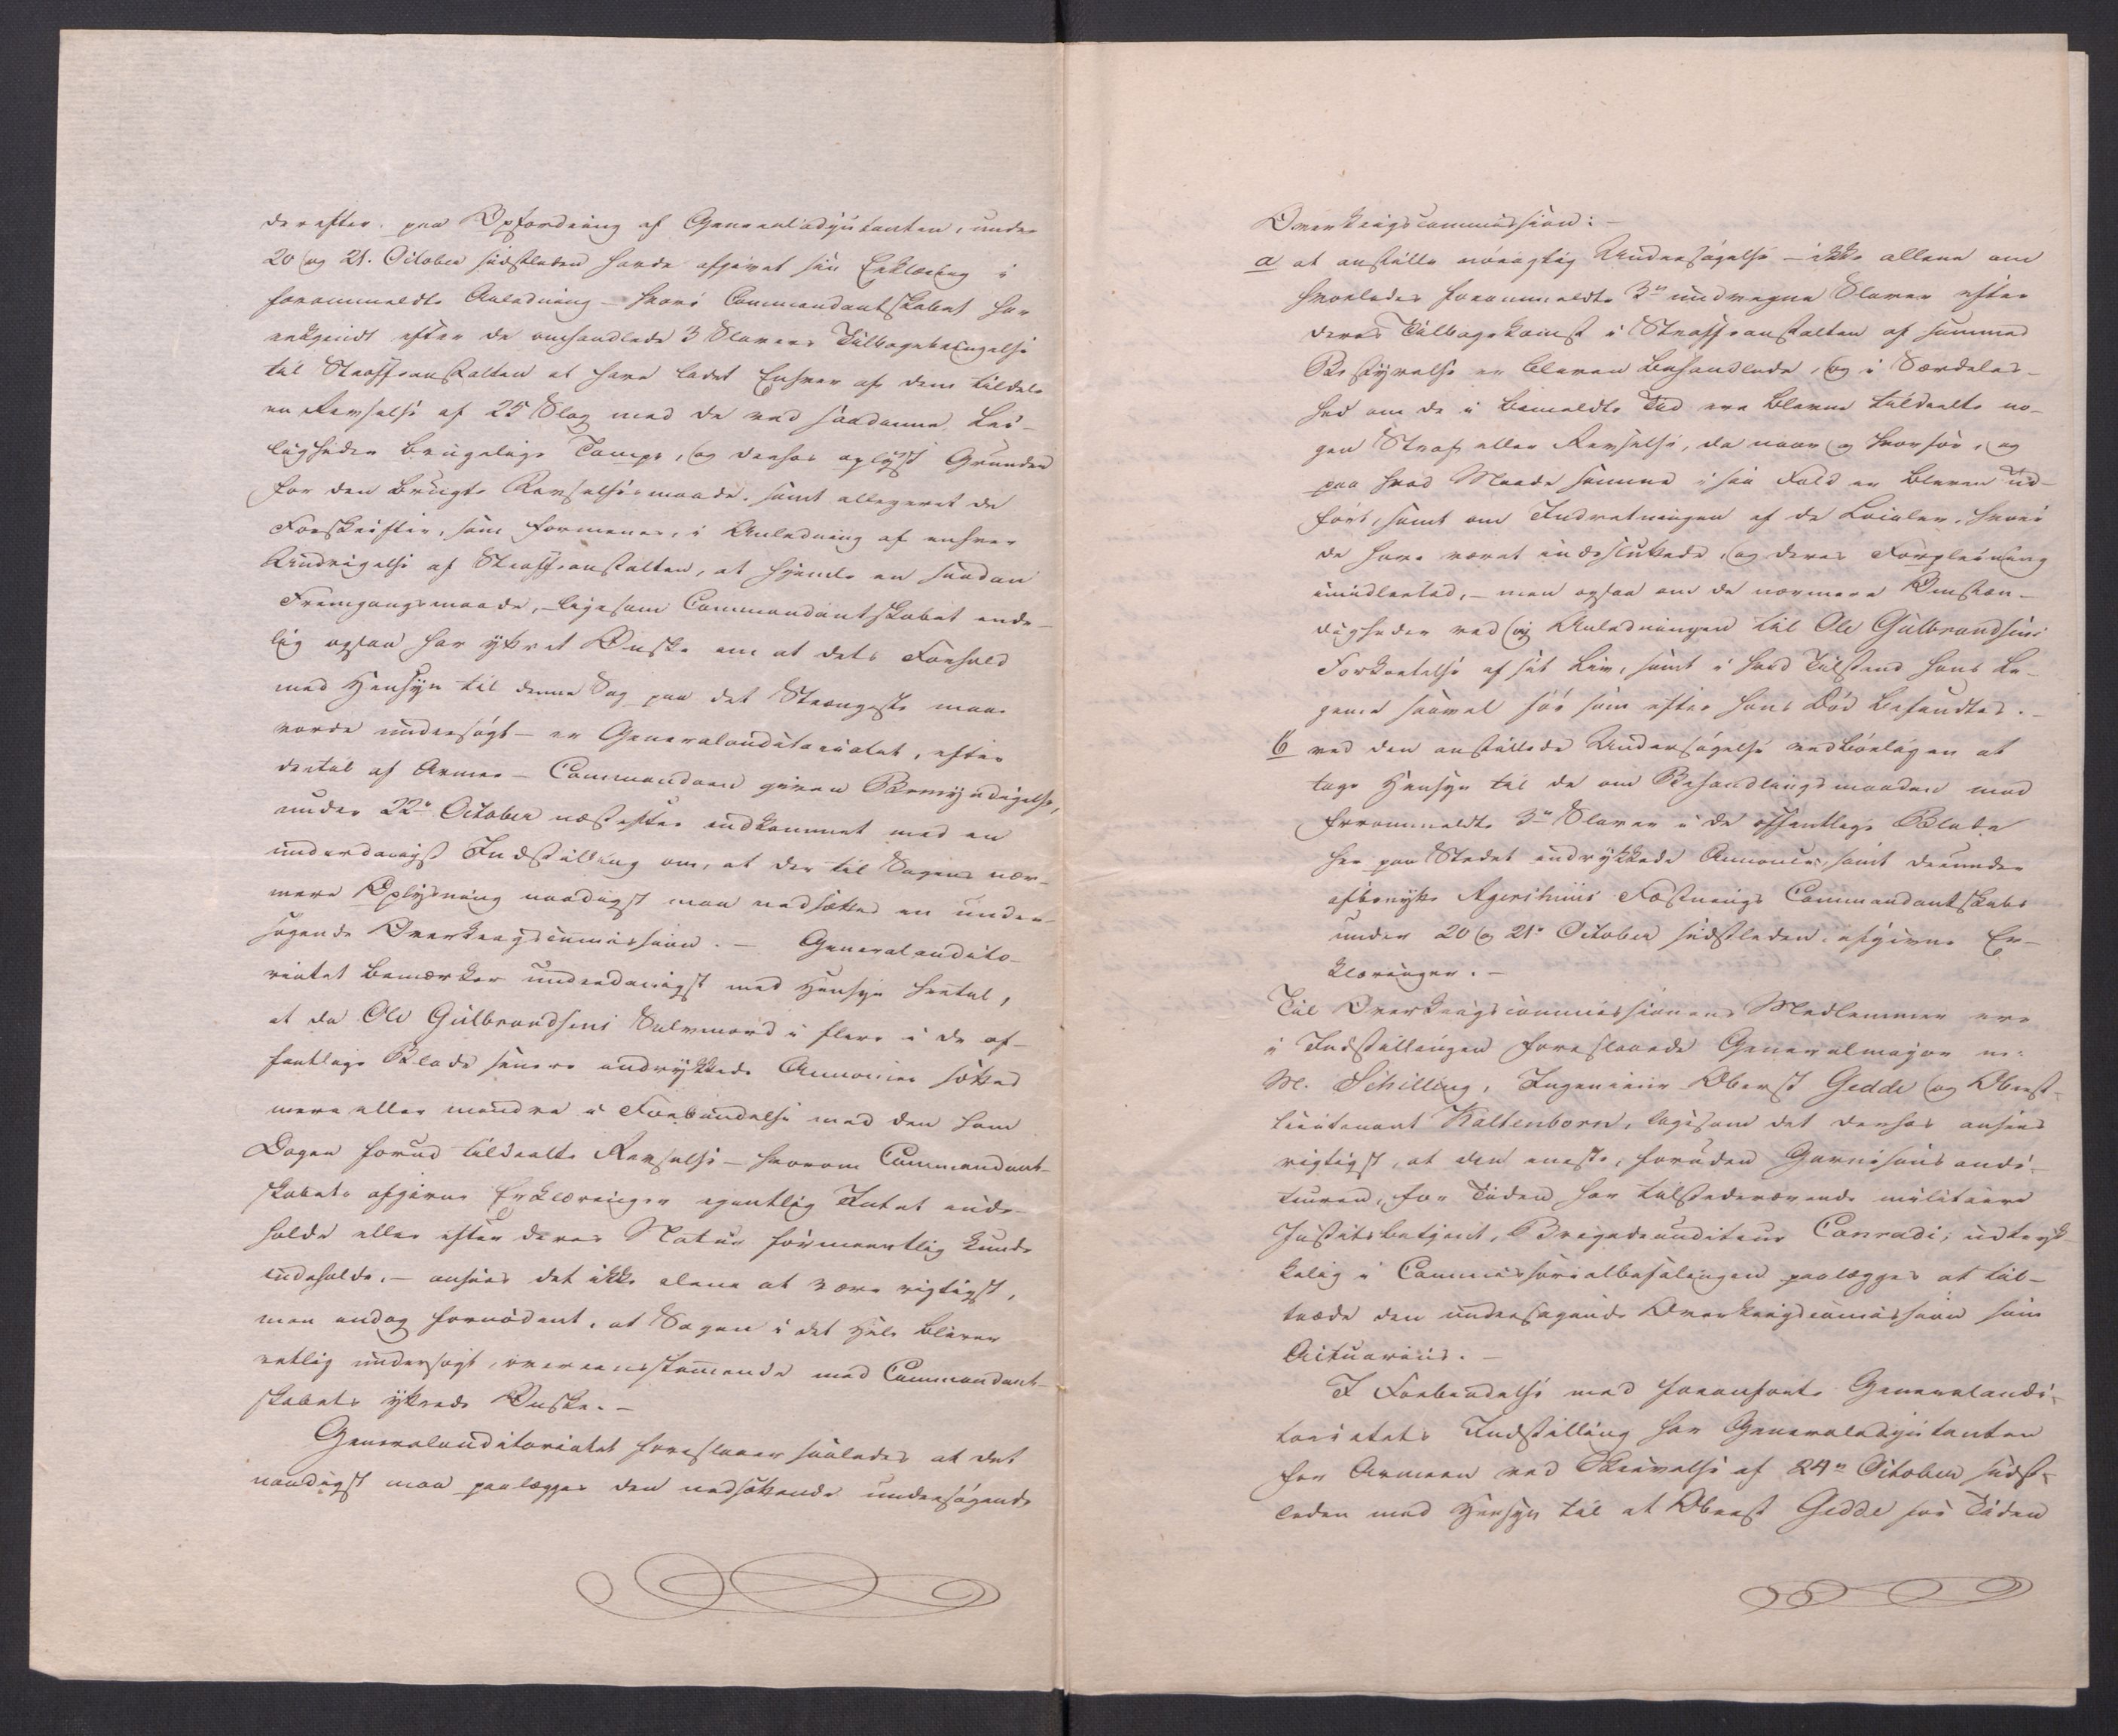 derefter, paa Opfordring af Generaladjutanten, under
20 og 21. October sidstleden havde afgivet sin Erklæring i
forommeldte Anledning – hvori Commandantskabet har
erkjendt efter de omhandlede 3 Slavers Tilbagebringelse
til Straffeanstalten at have ladet Enhver af dem tildele
en Revselse af 25 Slag med de ved saadanne Lei-
ligheder brugelige Tampe, og derhos oplyst Grunden
for den brugte Revselsesmaade, samt allegeret de
Forskrifter, som formenes, i Anledning af enhver
Undvigelse af Straffeanstalten, at hjemle en saadan
Fremgangsmaade, – ligesom Commandantskabet ende-
lig ogsaa har yttret Ønske om at dets Forhold
med Hensyn til denne Sag paa det Strængeste maa
vorde undersøgt – er Generalauditoriatet, efter
dertil af Armee-Commandoen given Bemyndigelse,
under 22de October næstefter indkommet med en
underdanigst Indstilling om, at der til Sagens nær-
mere Oplysning naadigst maa nedsættes en under-
søgende Overkrigscommission. – Generalaudito-
riatet bemærker underdanigst med Hensyn hertil,
at da Ole Gulbrandsens Selvmord i flere i de of-
fentlige Blade senere indrykkede Annoncer sættes
mere eller mindre i Forbindelse med den ham
Dagen forud tildeelte Revselse – hvorom Commandant-
skabets afgivne Erklæringer egentlig Intet inde-
holde eller efter deres Natur formeentlig kunde
indeholde, – ansees det ikke alene at være rigtigst,
men endog fornødent, at Sagen i det Hele bliver
retlig undersøgt, overeensstemmende med Commandant-
skabets yttrede Ønske. –
Generalauditoriatet foreslaaer saaledes at det
naadigst maa paalægges den nedsættende undersøgende
Overkrigscommission: –
a at anstille nøiagtig Undersøgelse – ikke allene om
hvorledes forommeldte 3de undvegne Slaver efter
deres Tilbagekomst i Straffeanstalten af sammes
Bestyrelse er bleven behandlede, og i Særdeles-
hed om de i bemeldte Tid ere blevne tildeelte no-
gen Straf eller Revselse, da naar og hvorfor, og
paa hvad Maade samme i saa Fald er bleven ud-
ført, samt om Indretningen af de Localer, hvori
de have været indesluttede, og deres Forpleining
imidlertid, – men ogsaa om de nærmere Omstæn-
digheder ved og Anledningen til Ole Gulbrandsens
Forkortelse af sit Liv, samt i hvad Tilstand hans Le-
geme saavel før som efter hans Død befandtes. –
b ved den anstillede Undersøgelse vedbørligen at
tage Hensyn til de om Behandlingsmaaden med
forommeldte 3de Slaver i de offentlige Blade
her paa Stedet indrykkede Annoncer, samt derunder
afbenytte Agershuus Fæstnings Commandantskabs
under 20 og 21de October sidstleden afgivne Er-
klæringer. –
Til Overkrigscommissionens Medlemmer ere
i Indstillingen foreslaaede Generalmajor m:
M. Schilling, Ingenieur Oberst Gedde og Oberst-
lieutenant Kaltenborn, ligesom det derhos ansees
rigtigst, at den eneste, foruden Garnisonsaudi-
teuren, for Tiden her tilstedeværende militaire
Justitsbetjent, Brigadeauditeur Conradi, udtryk-
kelig i Commissorialbefalingen paalægges at til-
træde den undersøgende Overkrigscommission som
Actuarius. –
I Forbindelse med foranførte Generalaudi-
toriatets Indstilling har Generaladjutanten
for Armeen ved Skrivelse af 24de October sidst-
leden med Hensyn til at Oberst Gedde for Tiden